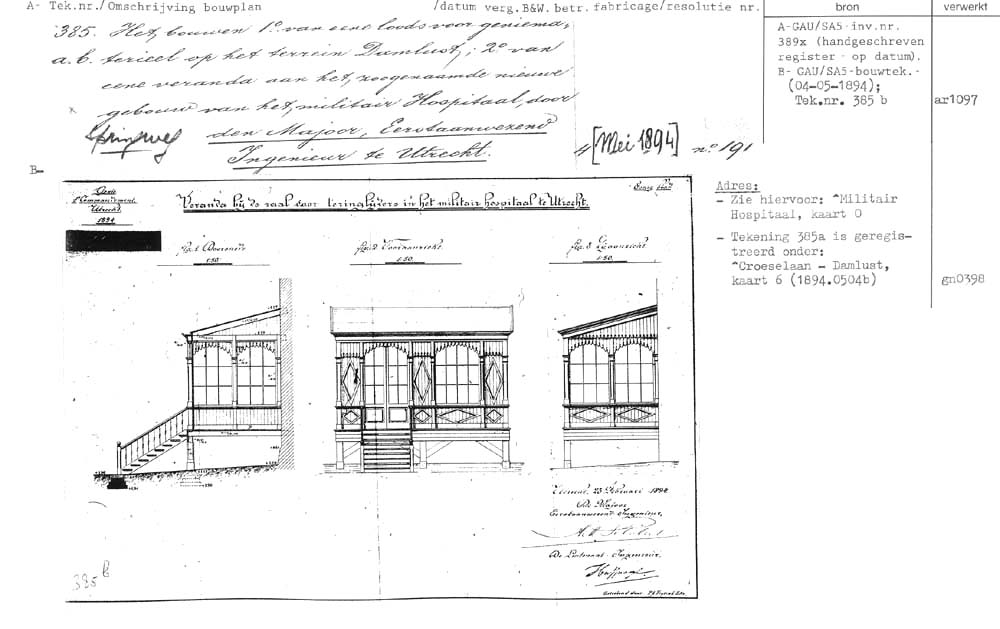 A- Tek.nr./Omschrijving bouwplan /datum verg.B&W.betr.fabricage/resolutie nr. bron verwerkt
385. Het bouwen 1º van eene loods voor geniema,
a.b. terieel op het terrein Damlust,; 2º van
eene veranda aan het, zoogenaamde nieuwe
gebouw van het, militair Hospitaal, door
den Majoor, Eerstaanwezend
Ingenieur te Utrecht.
Springweg
[Mei 1894] nº 191
A-GAU/SA5-inv.nr.
389x (handgeschreven
register op datum).
B- GAU/SA5-bouwtek.-
(04-05-1894);
Tek.nr. 385 b ar1097
B-
Genie
Commandement
Utrecht.
1894
Veranda bij de zaal voor teringlijders in het militair hospitaal te Utrecht.
Fig. 1 Doorsnede
1:50
Fig. 2 Vooraanzicht
1:50
Fig. 3 Zijaanzicht
1:50
Utrecht, 23 Februari 1894
De Majoor
Eerstaanwezend Ingenieur,
De Luitenant-Ingenieur.
385 b
Adres:
- Zie hiervoor: ^Militair
Hospitaal, kaart 0
- Tekening 385a is geregis-
treerd onder:
^Croeselaan - Damlust,
kaart 6 (1894.0504b) gn0398